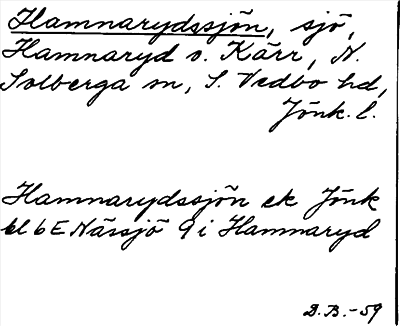 Hamnarydssjön, sjö,
Hamnaryd o. Kärr, N.
Solberga sn, S. Vedbo hd,
Jönk. l.
Hamnarydssjön ek Jönk
bl 6E Nässjö 9 i Hamnaryd
D.B.-59